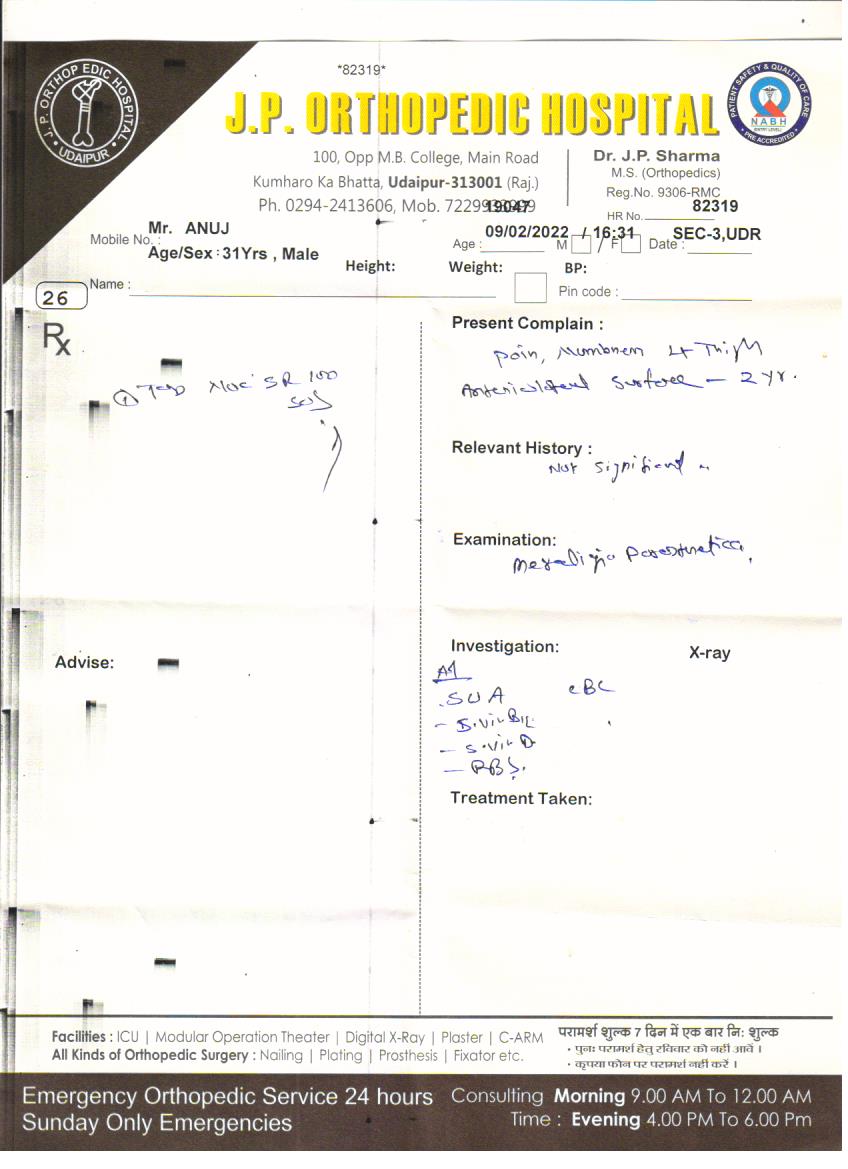 *82319*
J.P. ORTHOPEDIC HOSPITAL
J.P. ORTHOP EDIC HOSPITAL
UDAIPUR
PATIENT SAFETY & QUALITY OF CARE
NABH
(ENTRY LEVEL)
PRE ACCREDITED
100, Opp M.B. College, Main Road
Kumharo Ka Bhatta, Udaipur-313001 (Raj.)
Ph. 0294-2413606, Mob. 7229
19047
Dr. J.P. Sharma
M.S. (Orthopedics)
Reg.No. 9306-RMC
HR No. 82319
Mr. ANUJ
Mobile No. :
Age/Sex : 31Yrs , Male
09/02/2022 / 16:31 SEC-3,UDR
Age : M / F Date :
Height: Weight: BP:
Name :
Pin code :
26
Rx
① SR 100
SOS
Present Complain :
Pain, Numbness Lt Thigh
Anterolateral Surface - 2 yr.
Relevant History :
Not significant
Examination:
Meralgia Paresthetica
Investigation: X-ray
SUA CBC
- S.Vit B12
- S.Vit D
- RBS.
Treatment Taken:
Advise:
Facilities : ICU | Modular Operation Theater | Digital X-Ray | Plaster | C-ARM
All Kinds of Orthopedic Surgery : Nailing | Plating | Prosthesis | Fixator etc.
परामर्श शुल्क 7 दिन में एक बार नि: शुल्क
• पुनः परामर्श हेतु रविवार को नहीं आवें ।
• कृपया फोन पर परामर्श नहीं करें ।
Emergency Orthopedic Service 24 hours
Sunday Only Emergencies
Consulting Morning 9.00 AM To 12.00 AM
Time : Evening 4.00 PM To 6.00 Pm